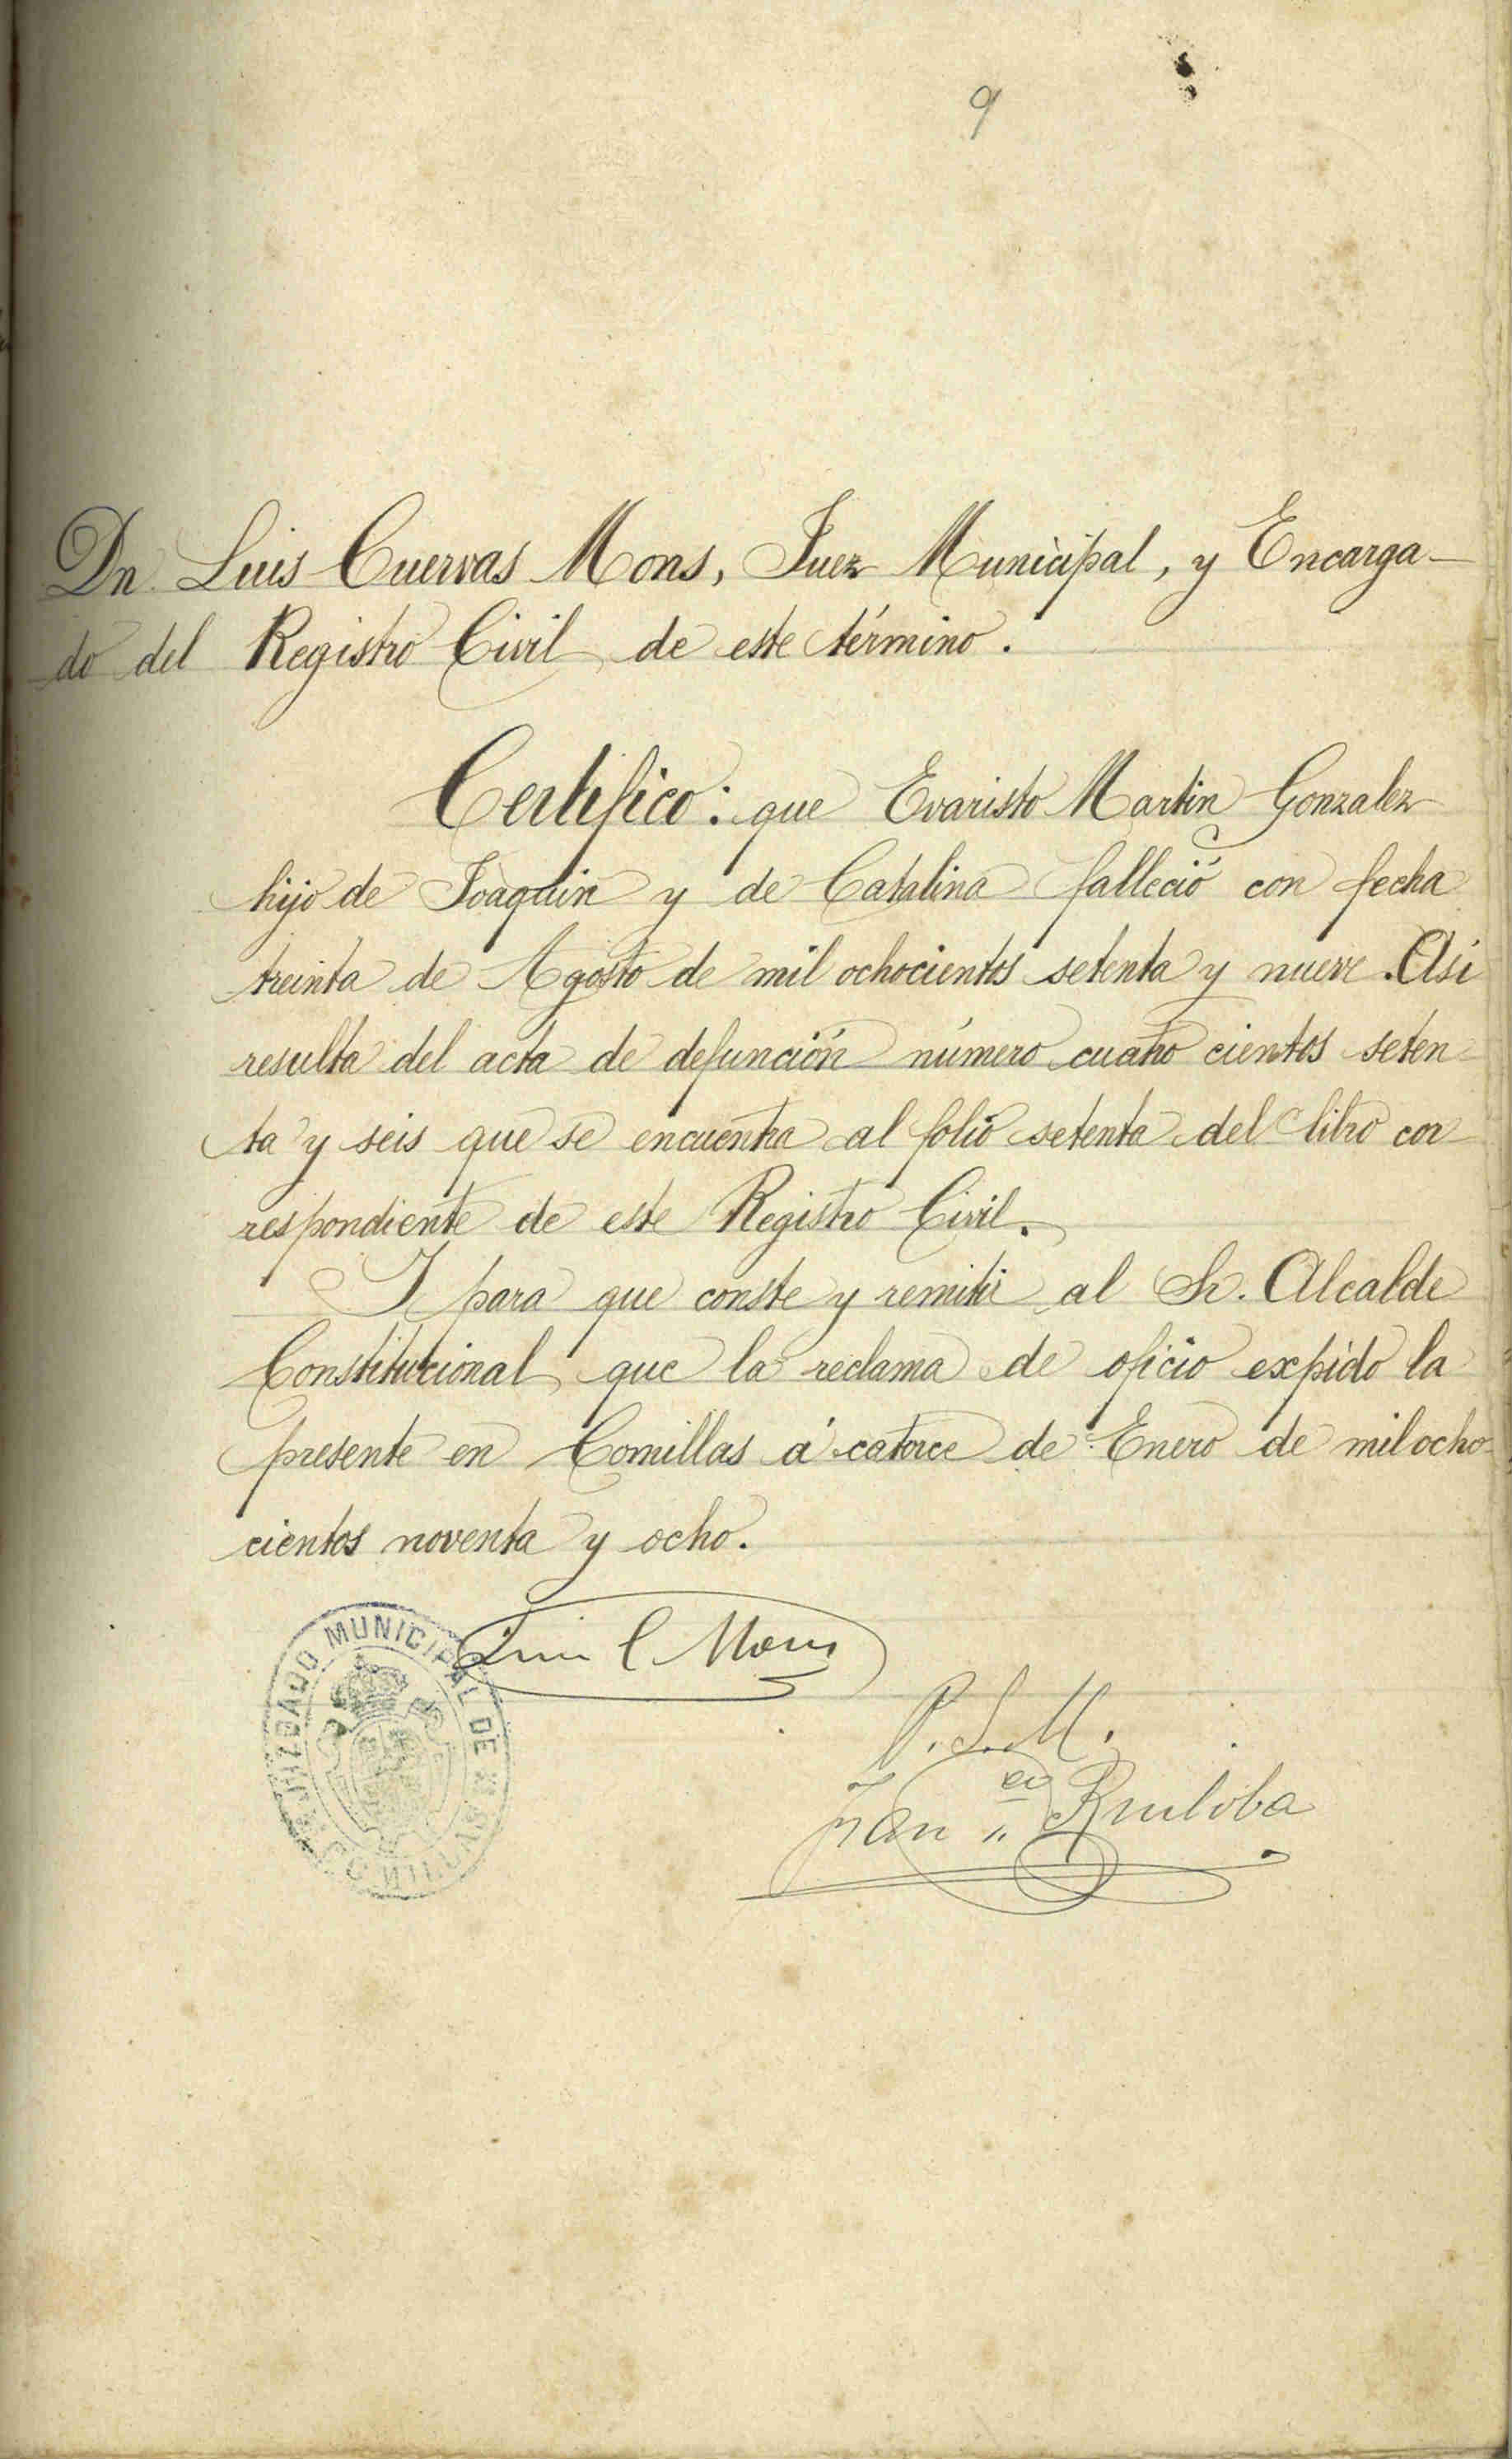 9
Dn. Luis Cuervas Mons, Juez Municipal, y Encarga-
do del Registro Civil de este término.
Certifico: que Evaristo Martin Gonzalez
hijo de Joaquin y de Catalina falleció con fecha
treinta de Agosto de mil ochocientos setenta y nueve. Asi
resulta del acta de defunción número cuatro cientos seten-
ta y seis que se encuentra al folio setenta del libro cor
respondiente de este Registro Civil.
I para que conste y remitir al Sr. Alcalde
Constitucional que la reclama de oficio expido la
presente en Comillas á catorce de Enero de mil ocho-
cientos noventa y ocho.
Luis C Mons
JUZGADO MUNICIPAL DE COMILLAS
P.S.M.
Fran.co Ruiloba